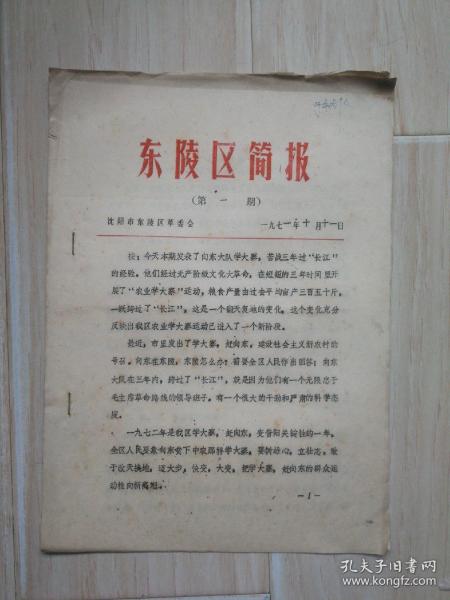 东陵区简报
（第一期）
沈阳市东陵区革委会 一九七一年十月十一日
按：今天本期发表了向东大队学大寨，苦战三年过“长江”
的经验。他们经过无产阶级文化大革命，在短短的三年时间里开
展了“农业学大寨”运动，粮食产量由过去平均亩产三百五十斤，
一跃跨过了“长江”，这是一个翻天复地的变化。这个变化充分
反映出我区农业学大寨运动已进入了一个新阶段。
最近，市里发出了学大寨，赶向东，建设社会主义新农村的
号召。向东在东陵，东陵怎么办？需要全区人民作出回答：向东
大队在三年内，跨过了“长江”，就是因为他们有一个无限忠于
毛主席革命路线的领导班子。有一个很大的干劲和严肃的科学态
度。
一九七二年是我区学大寨，赶向东，变昔阳关键性的一年。
全区人民要象向东贫下中农那样学大寨，要树雄心，立壮志，敢
于改天换地，迈大步，快变，大变，把学大寨，赶向东的群众运
动推向新高潮。
—1—
孔夫子旧书网
www.kongfz.com